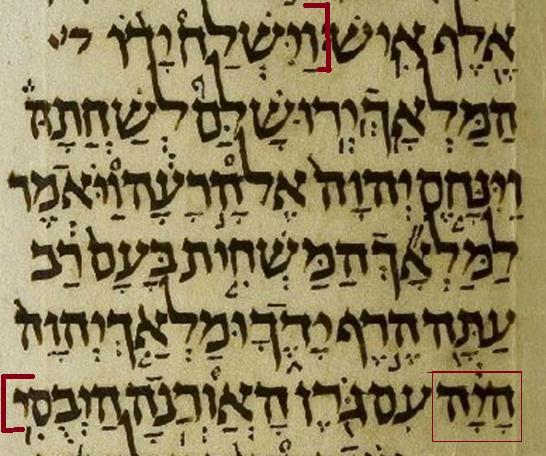 אֶלֶף אִישׁ׃ וַיִּשְׁלַח יָדוֹ
הַמַּלְאָךְ יְרוּשָׁלִַם לְשַׁחֲתָהּ
וַיִּנָּחֶם יְהוָה אֶל הָרָעָה וַיֹּאמֶר
לַמַּלְאָךְ הַמַּשְׁחִית בָּעָם רַב
עַתָּה הֶרֶף יָדֶךָ וּמַלְאַךְ יְהוָה
הָיָה עִם גֹּרֶן הָאֲוַרְנָה הַיְבֻסִי